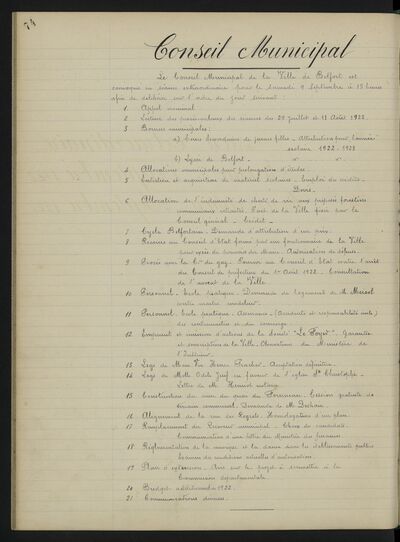 74
Conseil Municipal
Le Conseil Municipal de la Ville de Belfort est
convoqué en séance extraordinaire pour le samedi 9 Septembre à 15 heures
afin de délibérer sur l'ordre du jour suivant :
1 Appel nominal.
2 Lecture des procès-verbaux des séances des 28 Juillet et 18 Août 1922.
3 Bourses municipales :
a) Cours secondaires de jeunes filles - Attributions pour l'année
scolaire 1922-1923
b) Lycée de Belfort
4 Allocations municipales pour prolongations d'études
5 Entretien et acquisition de matériel scolaire. Emploi du crédit.
6 Allocation de l'indemnité de cherté de vie aux préposés forestiers
communaux retraités. Part de la Ville fixée par le
Conseil général - Crédit
7 Cycle Belfortain - Demande d'attribution d'un prix.
8 Recours au Conseil d'Etat formé par un fonctionnaire de la Ville
9 Procès avec la Cie du gaz. Pourvoi au Conseil d'Etat contre l'arrêté
du Conseil de préfecture du 1er Août 1922. Consultation
de l'avocat de la Ville
10 Personnel. Ecole pratique. Demande de logement de M.
11 Personnel. Ecole pratique. Assurance (Accidents et responsabilité civile)
du concierge
12 Emprunt et émission d'actions de la Société "Le Foyer". Garantie
et souscription de la Ville. Observations du Ministère de
l'Intérieur
13 Legs de Mme Vve - Acceptation définitive.
14 Legs de Melle Odile en faveur de l'église St Christophe.
Lettre de M. notaire
15 Construction du mur du quai du - Cession gratuite de
terrain communal. Demande de M.
16 Alignement de la rue - Homologation d'un plan.
17 Remplacement du Receveur municipal. Choix du candidat.
Communication d'une lettre du Ministre des finances
18 Réglementation de la musique et la danse dans les établissements publics
Examen des conditions actuelles d'autorisation.
19 Plan d'extension. Avis sur le projet à soumettre à la
Commission départementale.
20 Budget additionnel 1922.
21 Communications diverses.